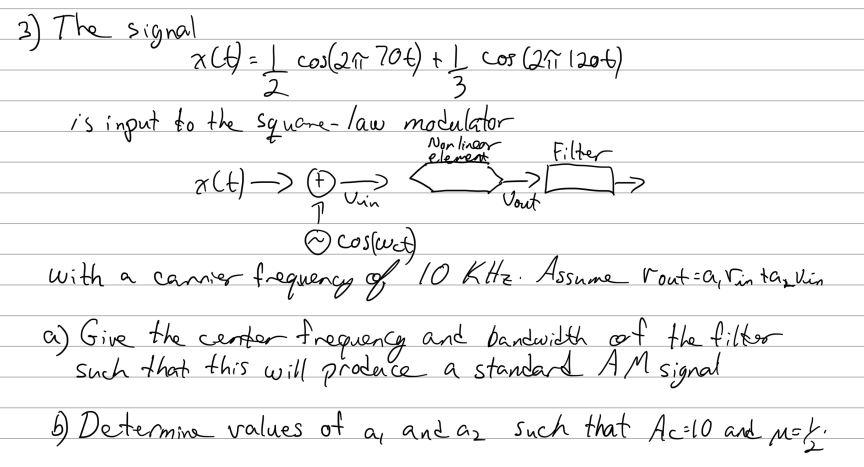 3) The signal
x(t) = 1/2 cos(2π 70t) + 1/3 cos(2π 120t)
is input to the square-law modulator
Nonlinear element
Filter
x(t) → + Vin → Vout →
~ cos(ωct)
with a carrier frequency of 10 KHz. Assume Vout=a₁Vin+a₂Vin
a) Give the center frequency and bandwidth of the filter
such that this will produce a standard AM signal
b) Determine values of a₁ and a₂ such that Ac=10 and μ=1/2.